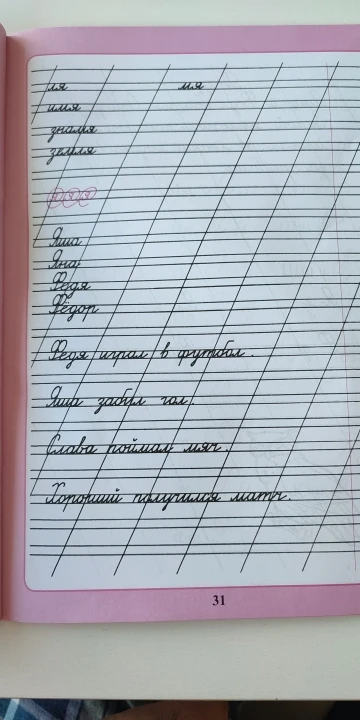 ля мя
имя
знамя
земля
Яша
Яна
Федя
Фёдор
Федя играл в футбол.
Яша забил гол.
Слава поймал мяч.
Хороший получился матч.
31